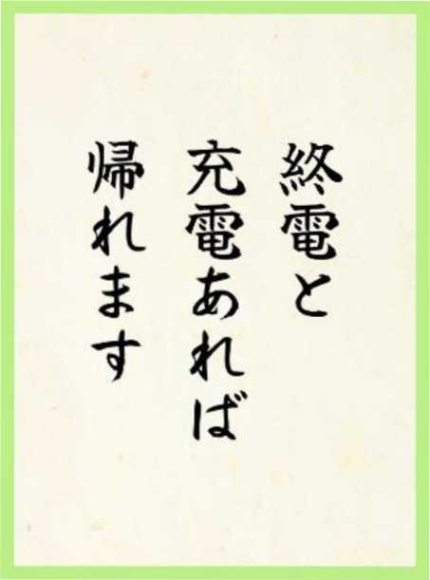 終電と
充電あれば
帰れます